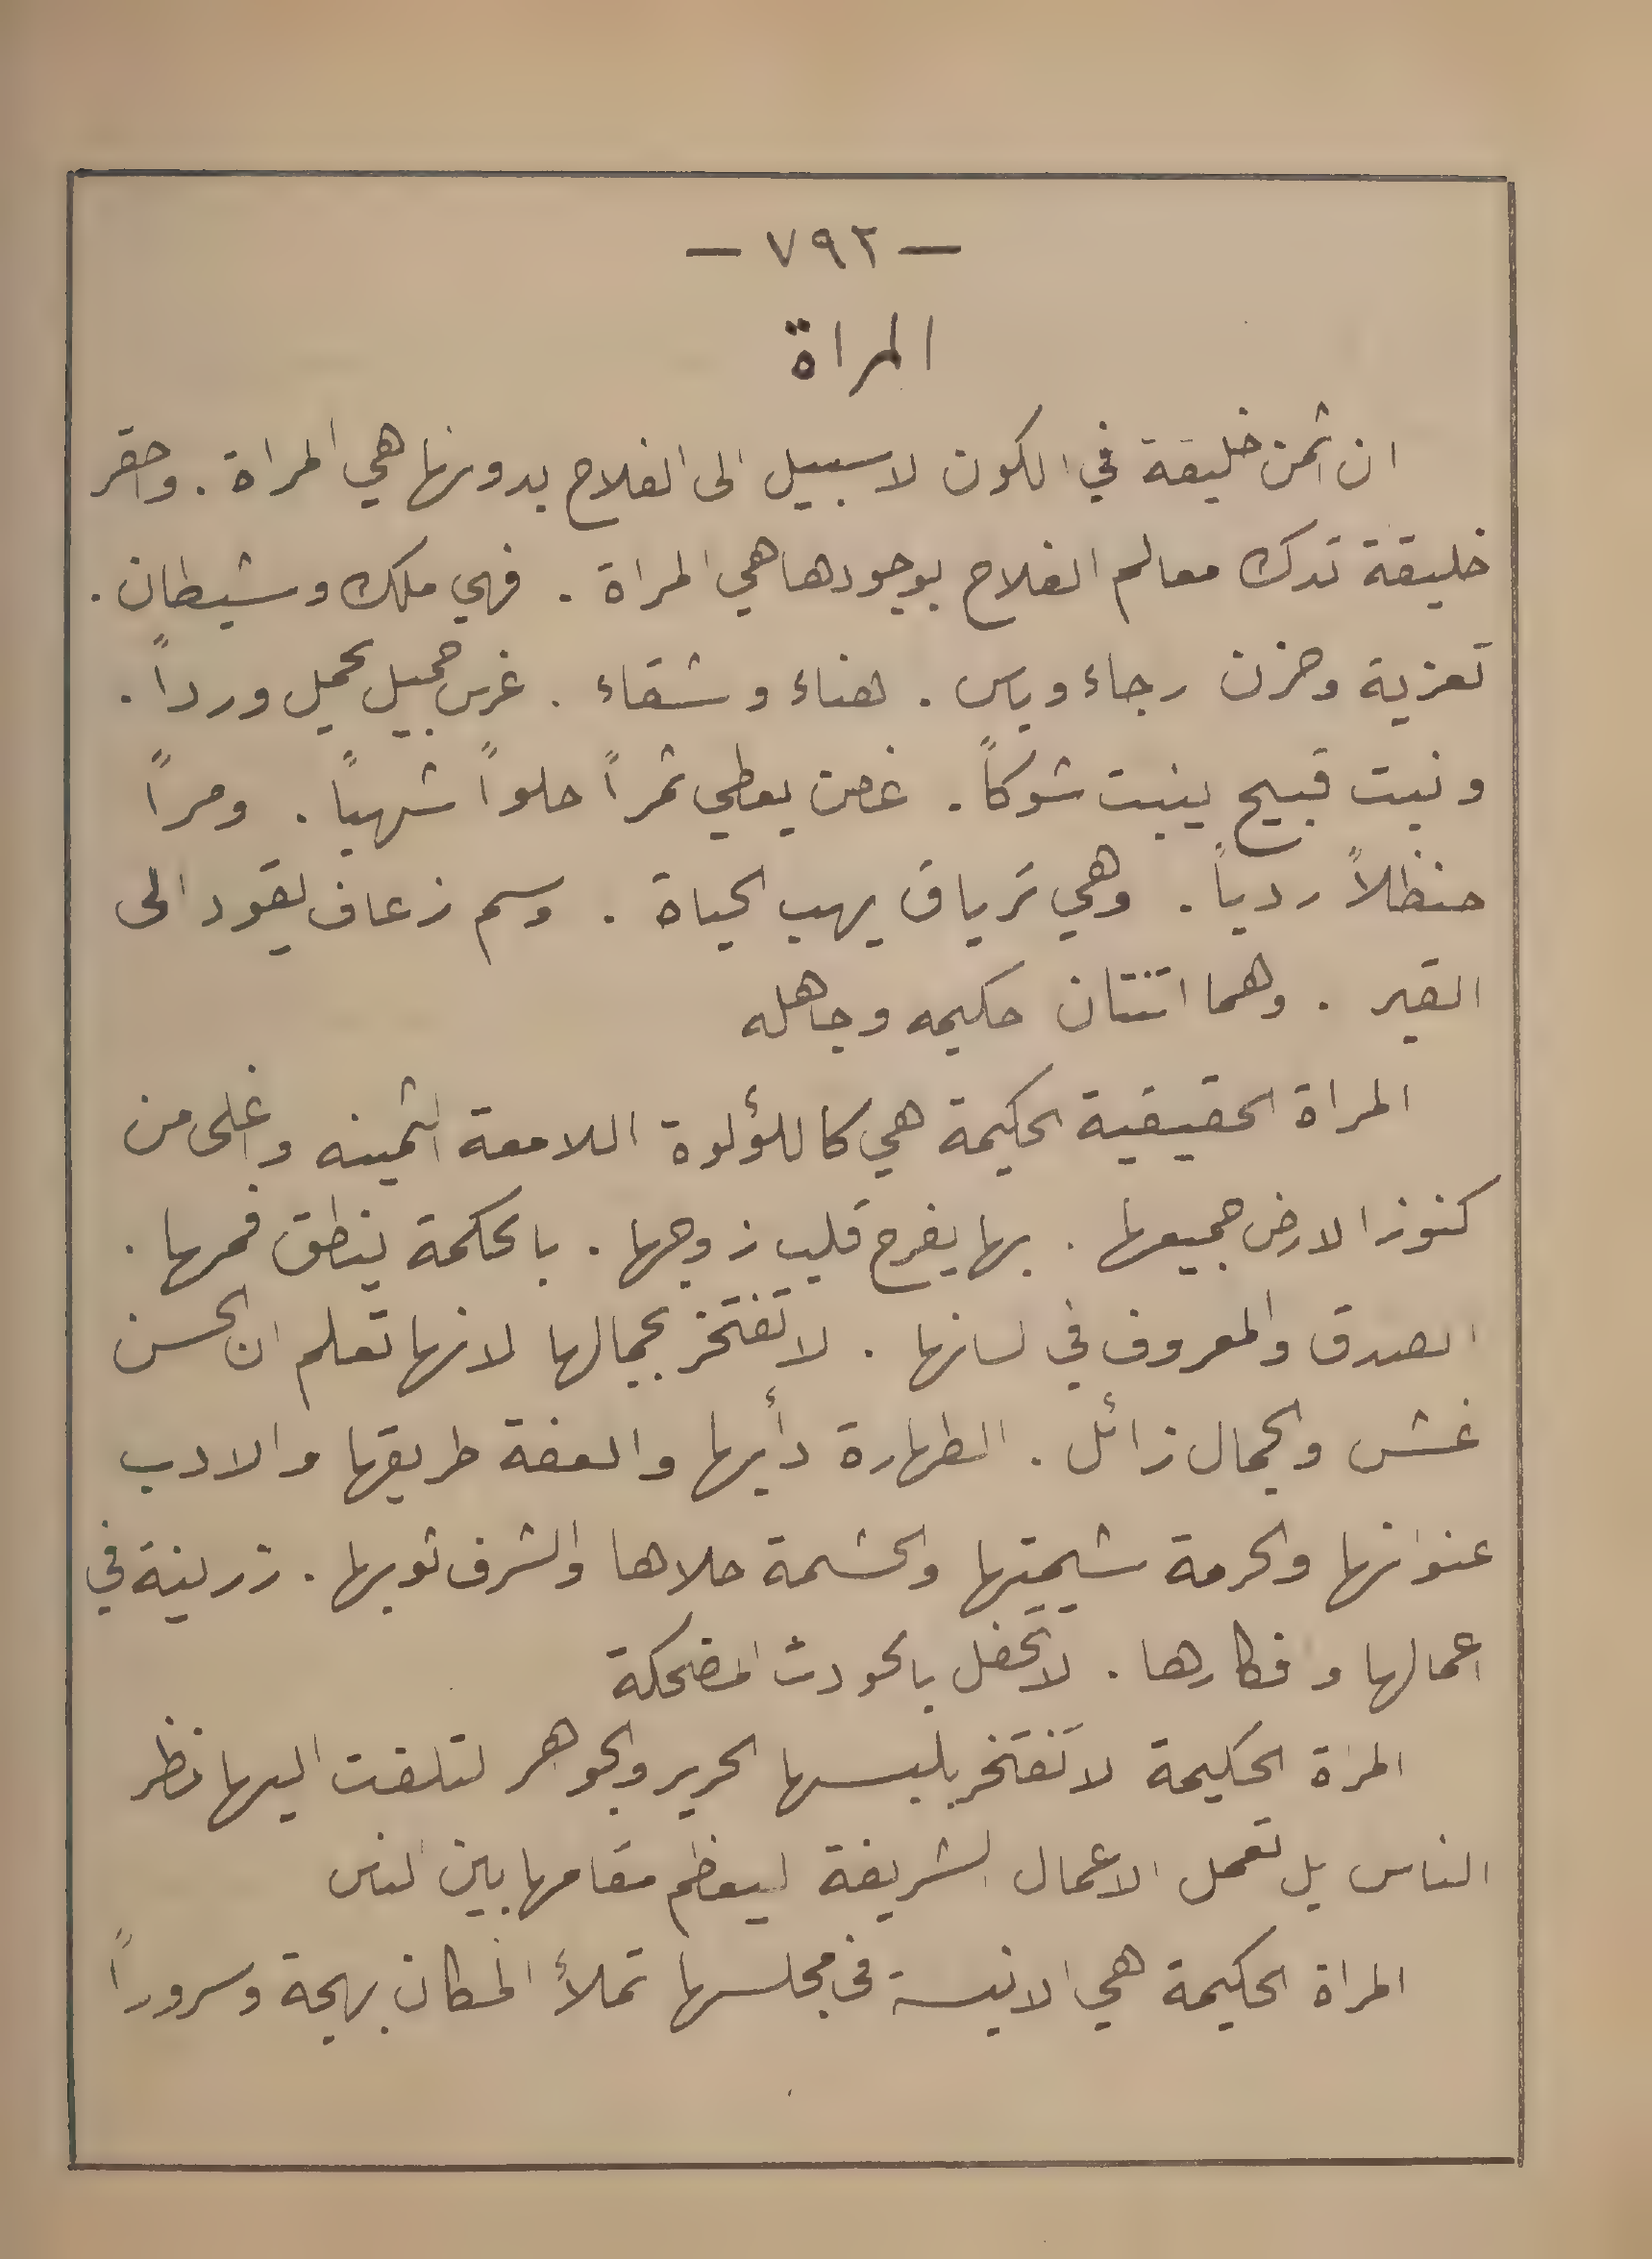 — ٧٩٢ —
المراة
ان اثمن خليقة في الكون لا سبيل الى الفلاح بدونها هي المراة . واحقر
خليقة تدك معالم الفلاح بوجودها هي المراة . فهي ملك وشيطان .
تعزية وحزن رجاء وياس . هناء وشقاء . غرس جميل يحمل ورداً .
ونبت قبيح ينبت شوكاً . غصن يعطي ثمراً حلواً شهياً . ومراً
حنظلاً ردياً . وهي ترياق يهب الحياة . وسم زعاف يقود الى
القبر . وهما اثنتان حكيمه وجاهله
المراة الحقيقية الحكيمة هي كاللؤلوة اللامعة الثمينه واغلى من
كنوز الارض جميعها . بها يفرح قلب زوجها . بالحكمة ينطق فمها .
الصدق والمعروف في لسانها . لا تفتخر بجمالها لانها تعلم ان الحسن
غش والجمال زائل . الطهارة دأبها والعفة طريقها والادب
عنوانها والحرمة شيمتها والحشمة حلاها والشرف ثوبها . رزينة في
اعمالها وافكارها . لا تحفل بالحودث المضحكة
المراة الحكيمة لا تفتخر بلبسها الحرير والجوهر لتلفت اليها نظر
الناس بل تعمل الاعمال الشريفة ليعظم مقامها بين الناس
المراة الحكيمة هي الانيسة في مجلسها تملأ المكان بهجة وسروراً